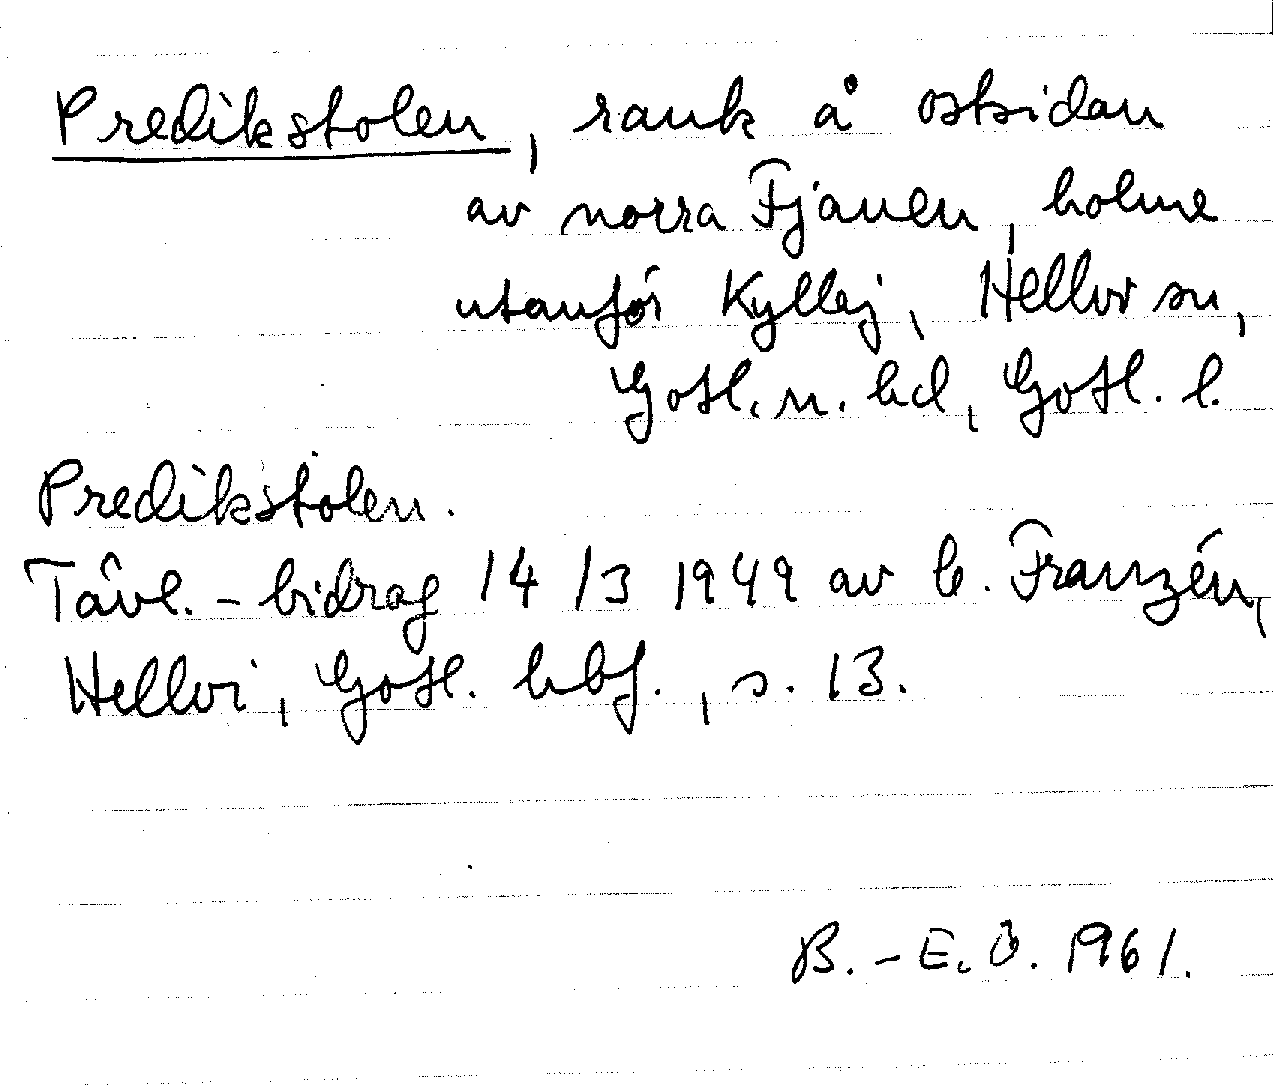 Predikstolen, rauk å ostsidan
av norra Fjauen, holme
utanför Kyllej, Hellvi sn,
Gotl. n. hd, Gotl. l.
Predikstolen.
Tävl.-bidrag 14/3 1949 av C. Franzén,
Hellvi, Gotl. hbf., s. 13.
B.-E.Ö. 1961.